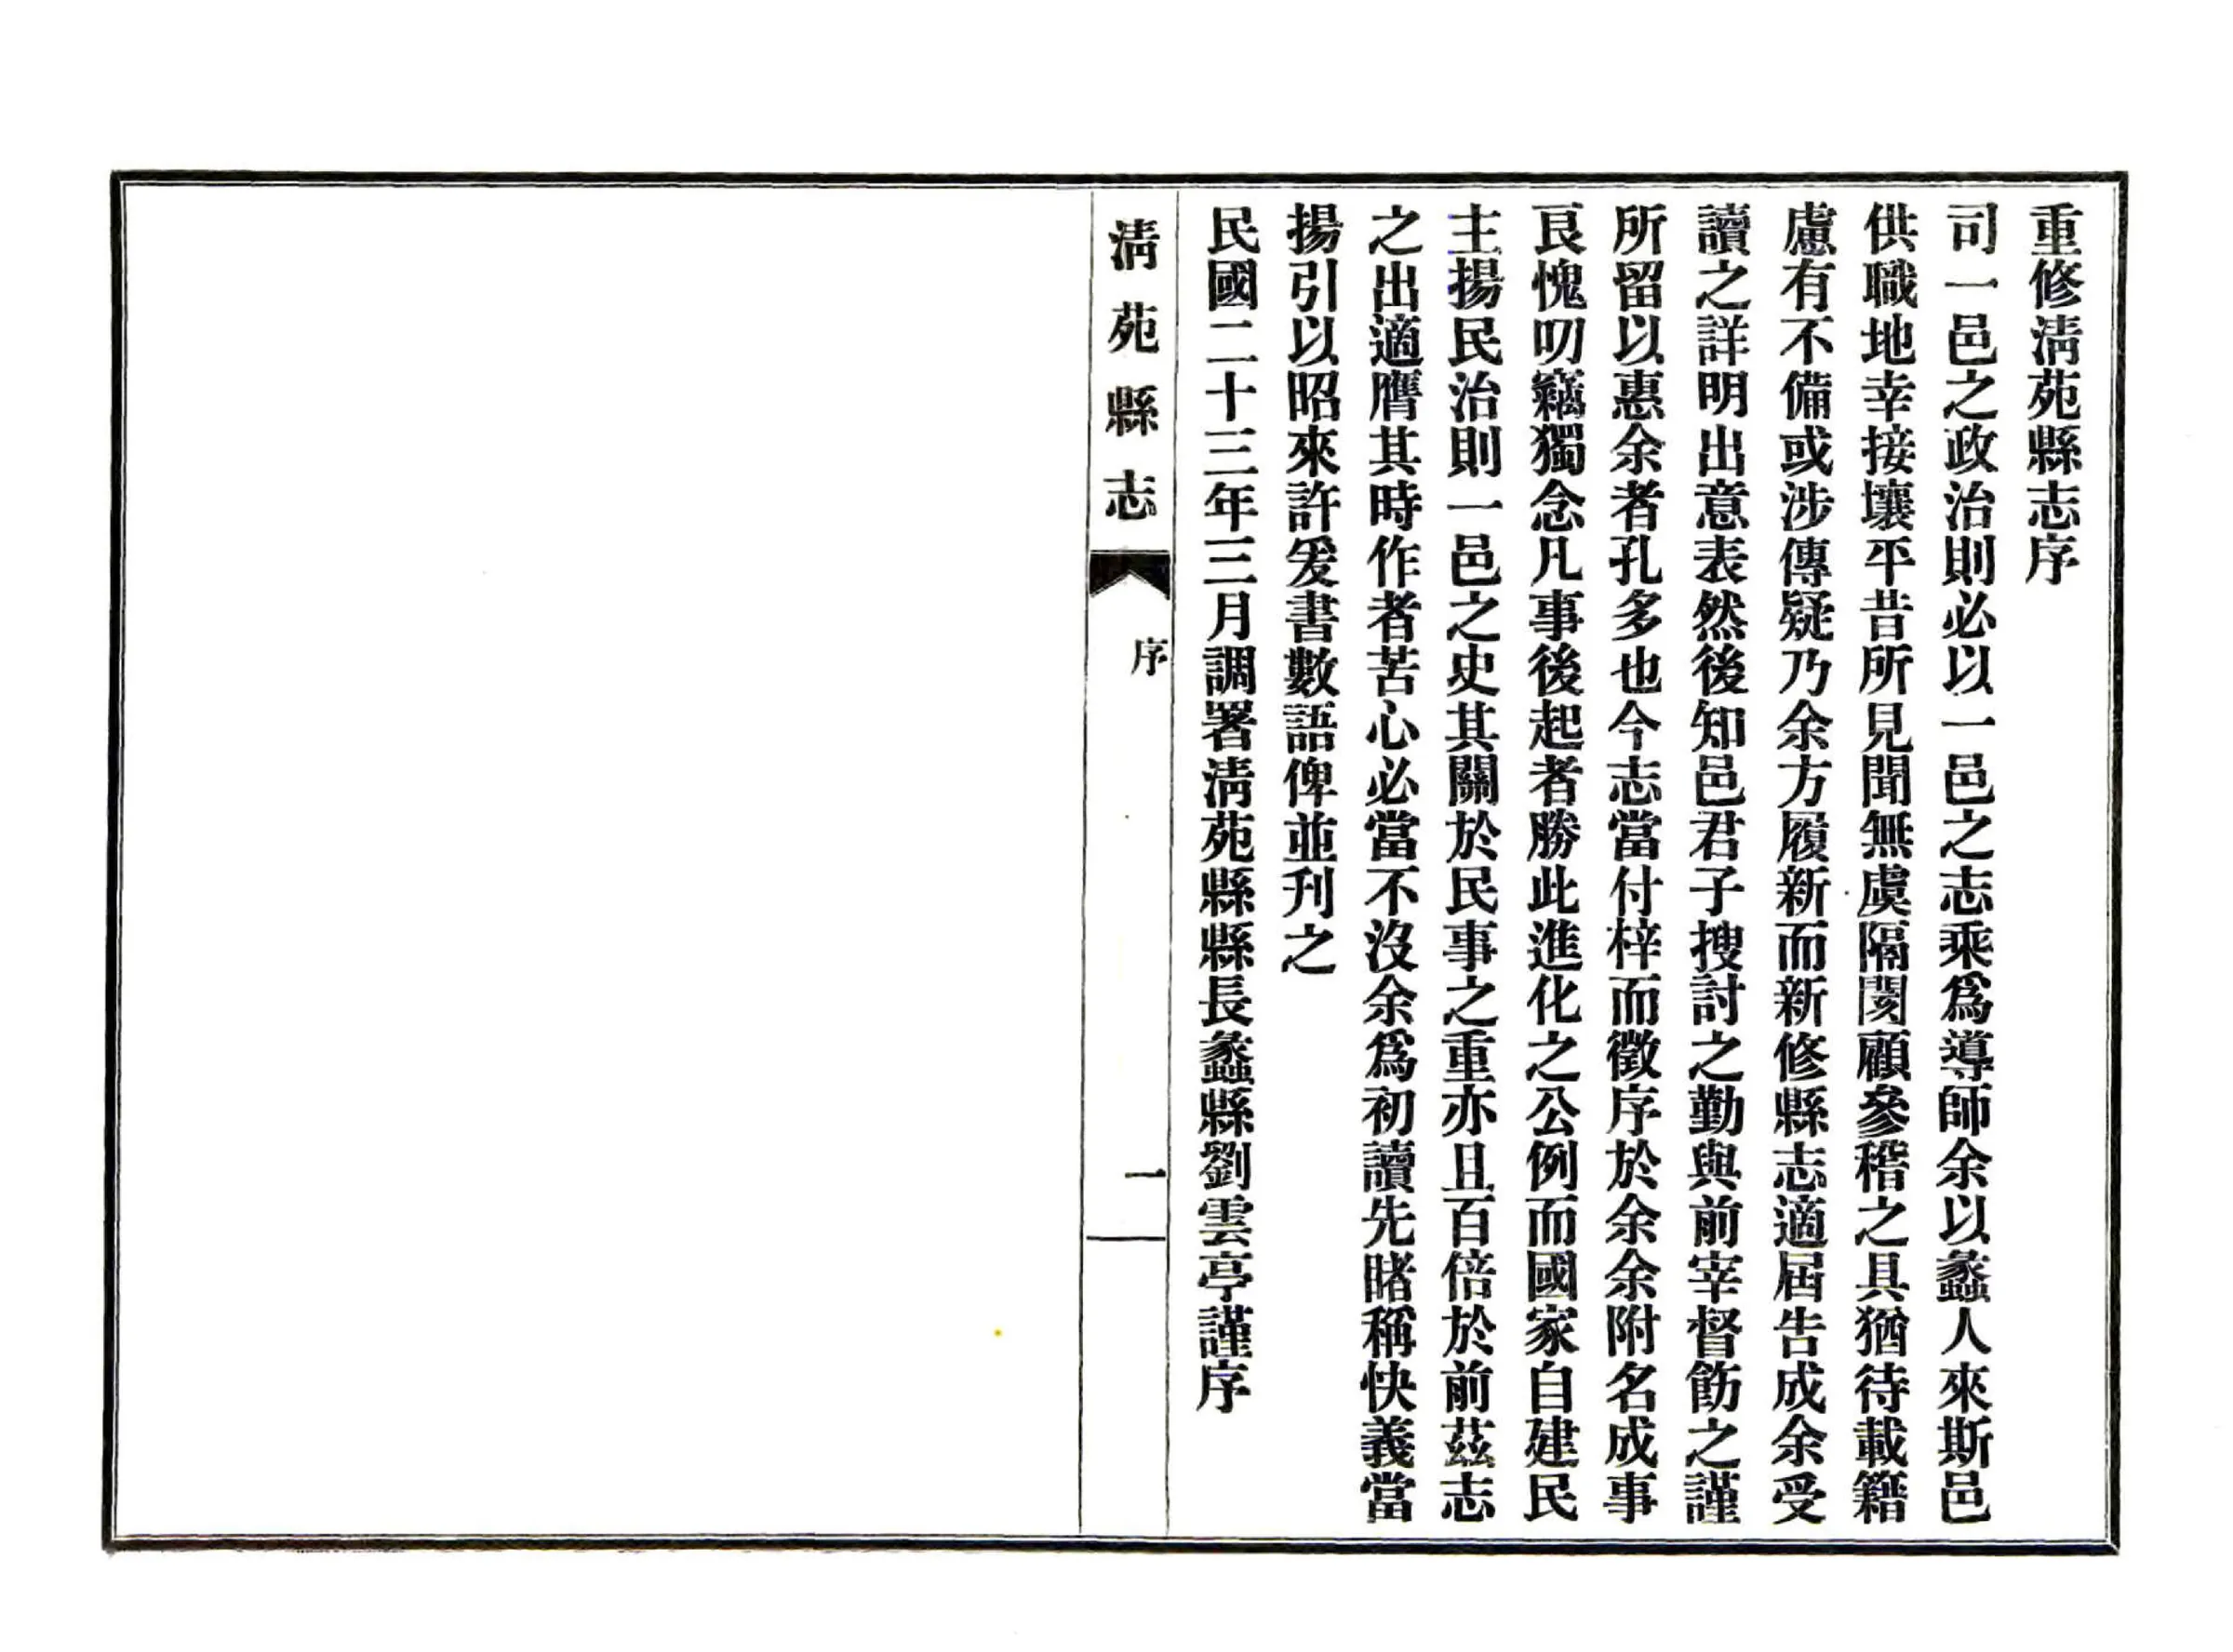 重修淸苑縣志序
司一邑之政治則必以一邑之志乘爲導師余以蠡人來斯邑
供職地幸接壤平昔所見聞無虞隔閡顧參稽之具猶待載籍
慮有不備或涉傳疑乃余方履新而新修縣志適屆告成余受
讀之詳明出意表然後知邑君子搜討之勤與前宰督飭之謹
所留以惠余者孔多也今志當付梓而徵序於余余附名成事
良愧叨竊獨念凡事後起者勝此進化之公例而國家自建民
主揚民治則一邑之史其關於民事之重亦且百倍於前茲志
之出適膺其時作者苦心必當不沒余爲初讀先睹稱快義當
揚引以昭來許爰書數語俾並刊之
民國二十三年三月調署淸苑縣縣長蠡縣劉雲亭謹序
淸苑縣志
序
一